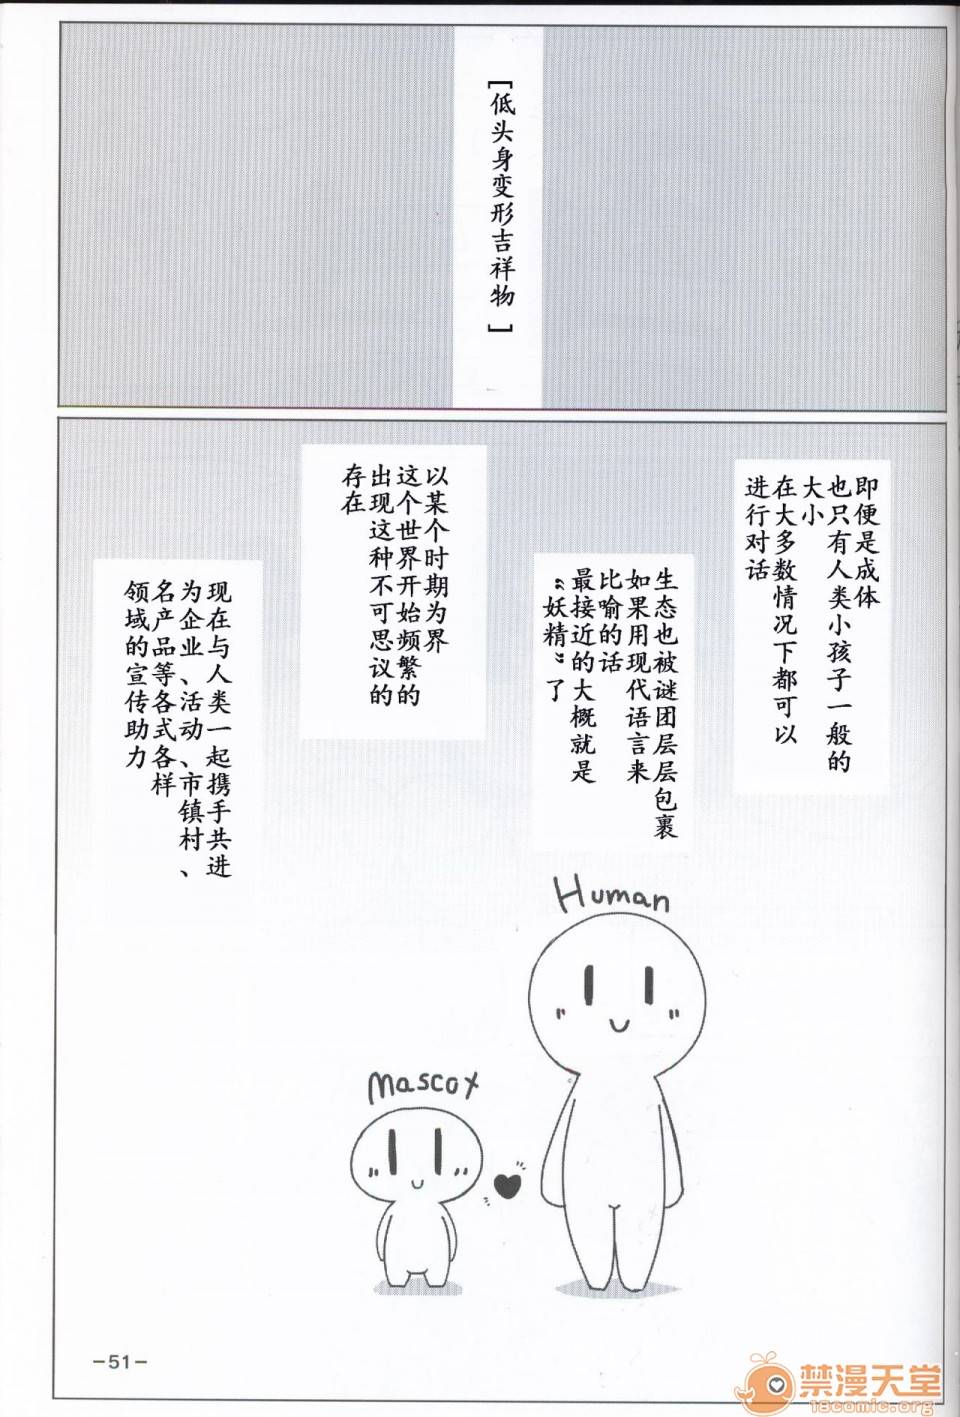 [低头身变形吉祥物]
即便是成体
也只有人类小孩子一般的
大小
在大多数情况下都可以
进行对话
生态也被谜团层层包裹
如果用现代语言来
比喻的话
最接近的大概就是
“妖精”了
以某个时期为界
这个世界开始频繁的
出现这种不可思议的
存在
现在与人类一起携手共进
为企业、活动、市镇村、
名产品等各式各样
领域的宣传助力
Human
mascot
-51-
禁漫天堂
18comic.org